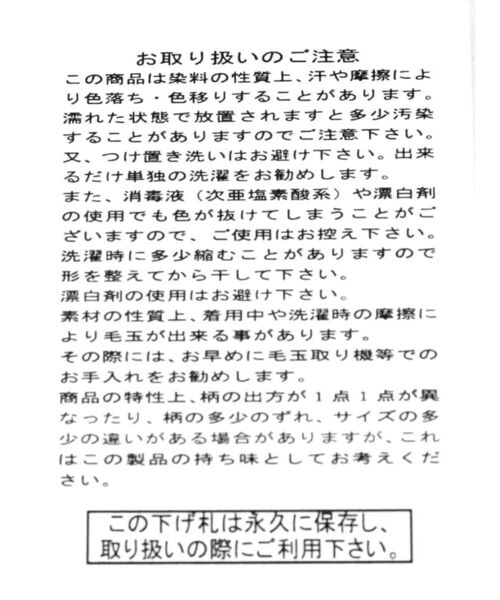 お取り扱いのご注意
この商品は染料の性質上、汗や摩擦によ
り色落ち・色移りすることがあります。
濡れた状態で放置されますと多少汚染
することがありますのでご注意下さい。
又、つけ置き洗いはお避け下さい。出来
るだけ単独の洗濯をお勧めします。
また、消毒液（次亜塩素酸系）や漂白剤
の使用でも色が抜けてしまうことがご
ざいますので、ご使用はお控え下さい。
洗濯時に多少縮むことがありますので
形を整えてから干して下さい。
漂白剤の使用はお避け下さい。
素材の性質上、着用中や洗濯時の摩擦に
より毛玉が出来る事があります。
その際には、お早めに毛玉取り機等での
お手入れをお勧めします。
商品の特性上、柄の出方が１点１点が異
なったり、柄の多少のずれ、サイズの多
少の違いがある場合がありますが、これ
はこの製品の持ち味としてお考えくだ
さい。
この下げ札は永久に保存し、
取り扱いの際にご利用下さい。